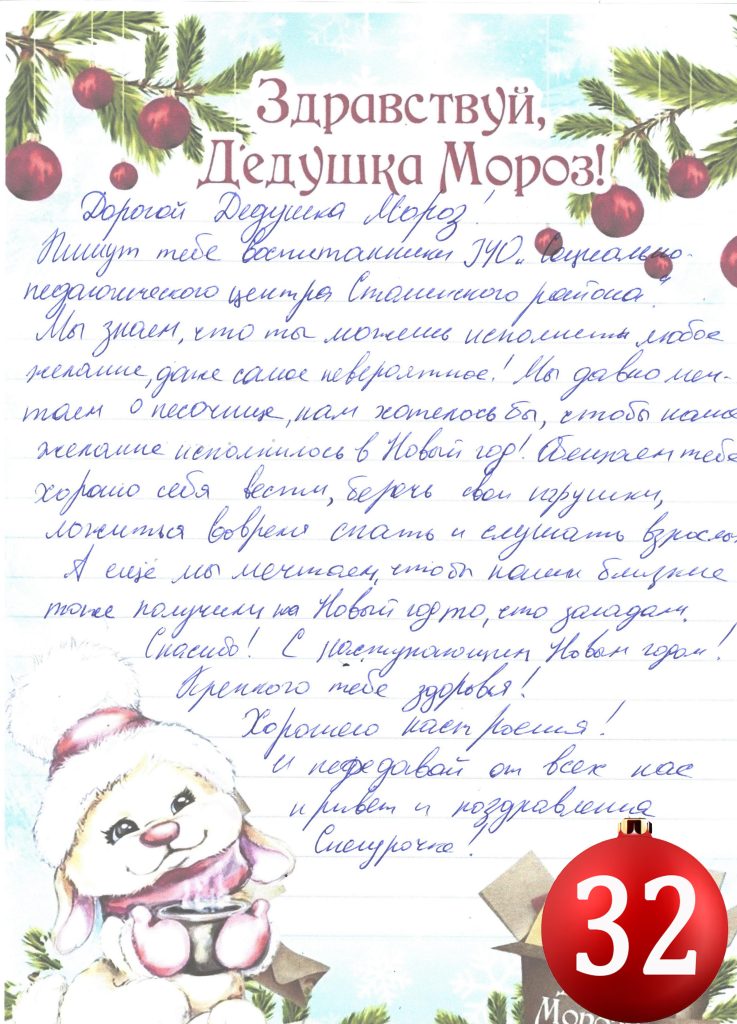 Здравствуй,
Дедушка Мороз!
Дорогой Дедушка Мороз!
Пишут тебе воспитанники ГУО „Социально-
педагогического центра Столинского района".
Мы знаем, что ты можешь исполнить любое
желание, даже самое невероятное! Мы давно меч-
таем о песочнице, нам хотелось бы, чтобы наше
желание исполнилось в Новый год! Обещаем тебе
хорошо себя вести, беречь свои игрушки,
ложиться вовремя спать и слушать взрослы
А ещё мы мечтаем, чтобы наши близкие
тоже получили на Новый год то, что загадали.
Спасибо! С наступающим Новым годом!
Крепкого тебе здоровья!
Хорошего настроения!
И передавай от всех нас
привет и поздравления
Снегурочке!
32